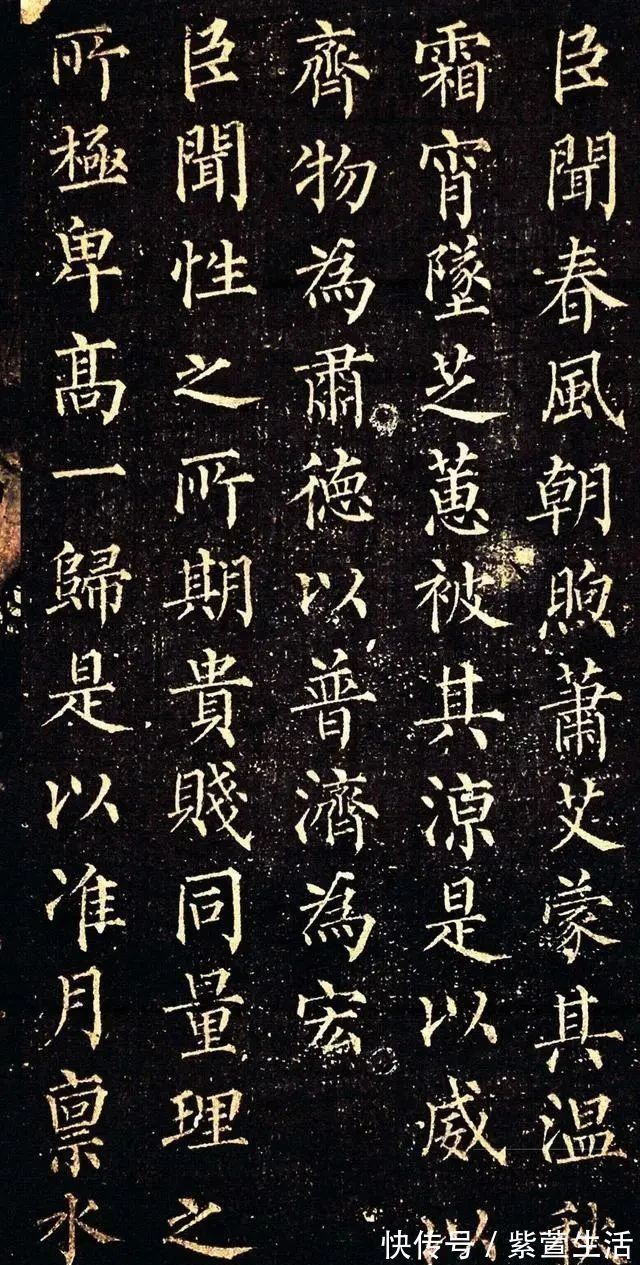 臣聞春風朝煦蕭艾蒙其温秋
霜宵墜芝蕙被其涼是以威以
齊物為肅德以普濟為宏
臣聞性之所期貴賤同量理之
所極卑髙一歸是以准月禀水
快传号 / 紫萱生活